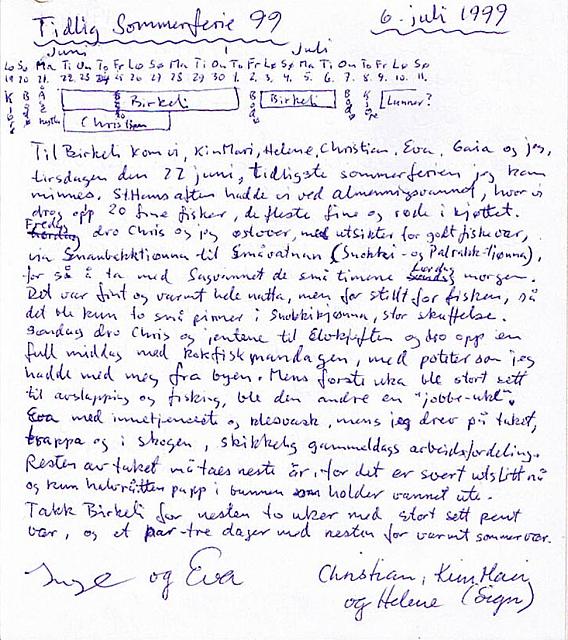 Tidlig Sommerferie 99
6. juli 1999
Juni
Juli
Lø Sø Ma Ti On To Fr Lø Sø Ma Ti On To Fr Lø Sø Ma Ti On To Fr Lø Sø
19 20 21. 22. 23. 24. 25 26 27. 28. 29 30 1. 2. 3. 4. 5. 6. 7. 8. 9. 10. 11.
Birkeli
Birkeli
Lunner?
Christian
Til Birkeli kom vi, Kim Mari, Helene, Christian, Eva, Gaia og jeg,
tirsdagen den 22 juni, tidligste sommerferien jeg kan
minnes. St.Hansaften hadde vi ved almenningsvannet, hvor vi
drog opp 20 fine fisker, de fleste fine og røde i kjøttet.
Fredag dro Chris og jeg østover, med utsikter for godt fiskevær,
via til Småvatnan
for så å ta med de små timene Lørdag morgen.
Det var fint og varmt hele natta, men for stillt for fisken, så
det ble kun to små pinner i stor skuffelse.
Søndag dro Chris og jentene til og dro opp en
full middag med kokfisk mandagen, med poteter som jeg
hadde med meg fra byen. Mens første uka ble stort sett
til avslapping og fisking, ble den andre en "jobbe-uke".
Eva med innetjeneste og klesvask, mens jeg drev på taket,
trappa og i skogen, skikkelig gammeldags arbeidsfordeling.
Resten av taket må taes neste år, for det er svert utslitt nå
og kun helråtten papp i bunnen som holder vannet ute.
Takk Birkeli for nesten to uker med stort sett pent
vær, og et par-tre dager med nesten for varmt sommervær.
Inge og Eva
Christian, Kim Mari
og Helene (Sign)